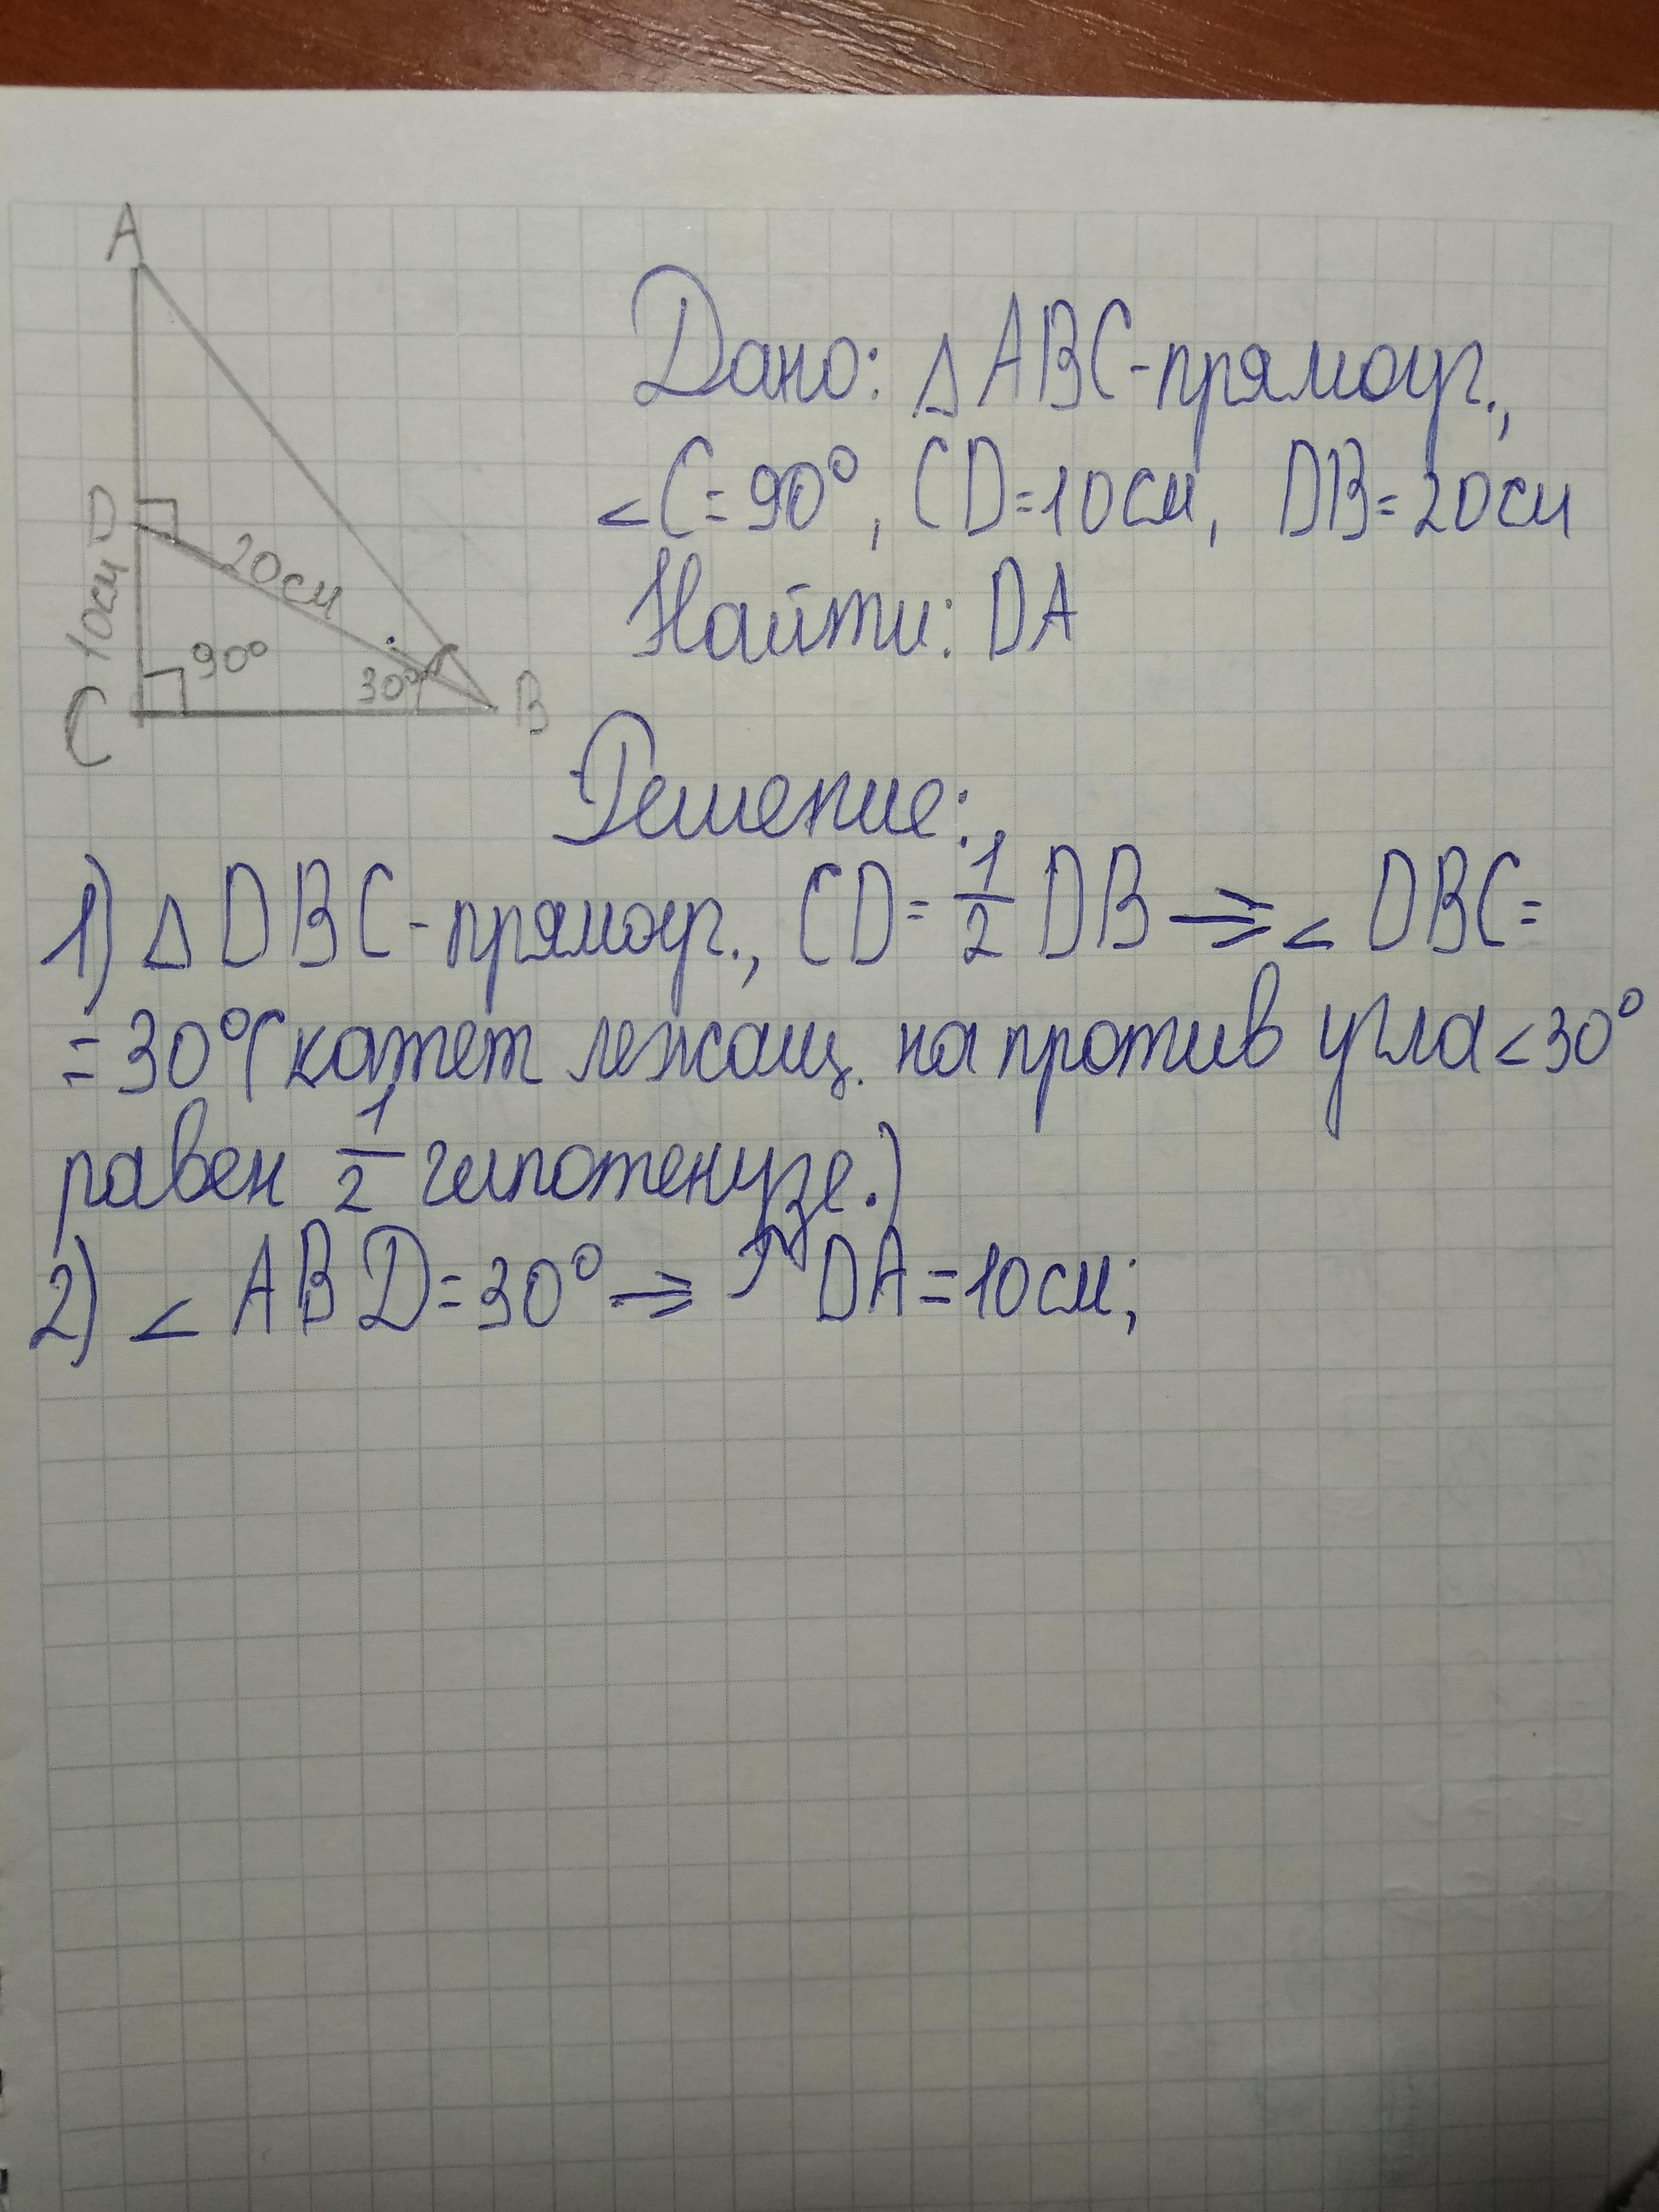 A
D
10см
20см
90°
30°
C
B
Дано: △ABC-прямоуг.,
∠C=90°, CD=10см, DB=20см
Найти: DA
Решение:
1) △DBC-прямоуг., CD=1/2 DB ⇒ ∠DBC=
=30°(катет лежащ. на против угла<30°
равен 1/2 гипотенузе.)
2) ∠ABD=30° ⇒ DA=10см;